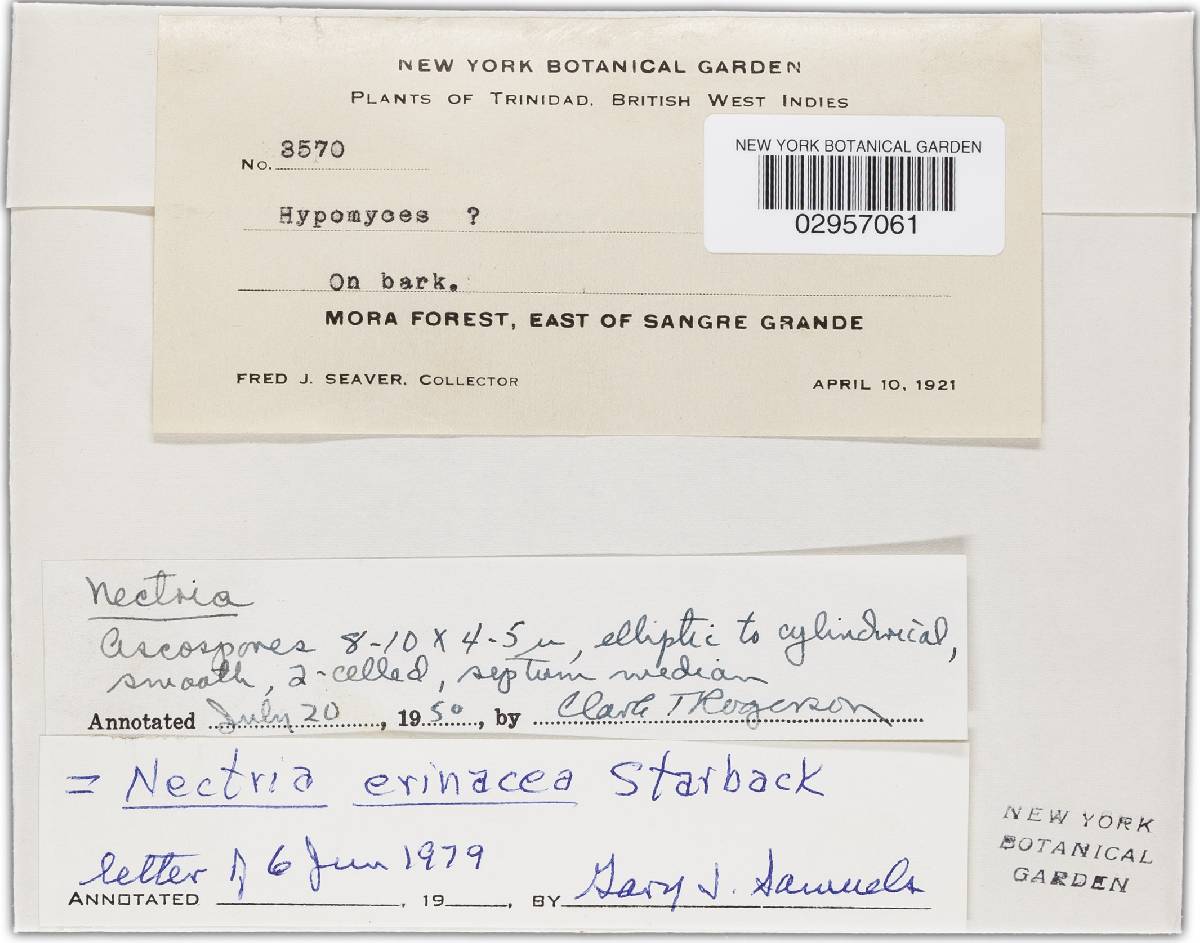 NEW YORK BOTANICAL GARDEN
PLANTS OF TRINIDAD, BRITISH WEST INDIES
No. 3570
NEW YORK BOTANICAL GARDEN
02957061
Hypomyces ?
On bark.
MORA FOREST, EAST OF SANGRE GRANDE
FRED J. SEAVER, COLLECTOR APRIL 10, 1921
Nectria
Ascospores 8-10 X 4-5 μ, elliptic to cylindrical,
smooth, 2-celled, septum median
Annotated July 20, 1950, by Clark T Rogerson
= Nectria erinacea Starback
letter of 6 Jun 1979
ANNOTATED , 19 , BY Gary J. Samuels
NEW YORK
BOTANICAL
GARDEN